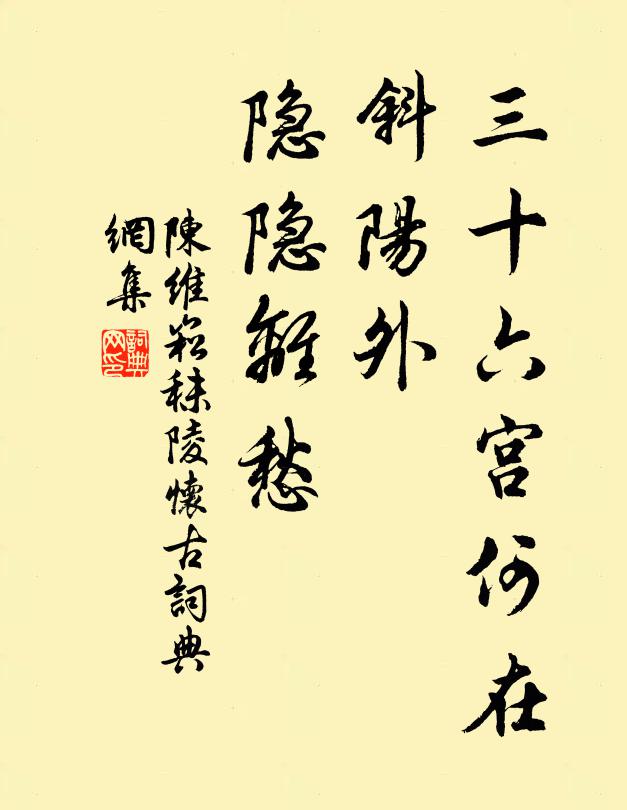 三十六宫何在
斜陽外
隐隐離愁
陳維崧秣陵懷古詞典
網集
詞典网印